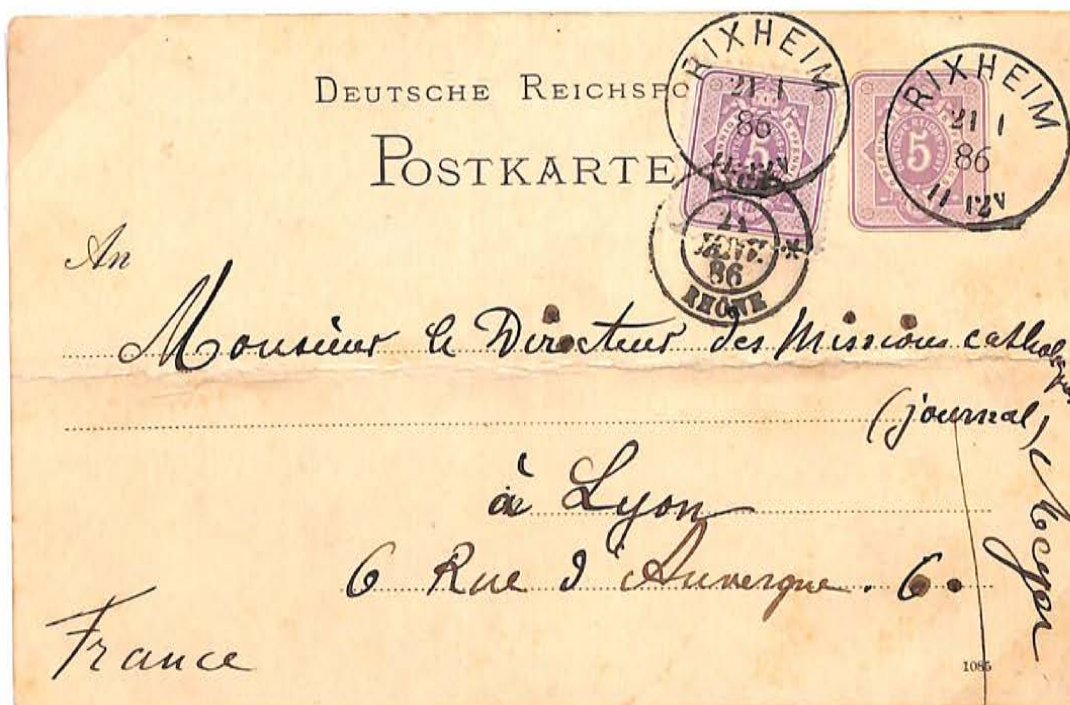 DEUTSCHE REICHSPO
POSTKARTE
RIXHEIM
21 1
86
5
RIXHEIM
21 1
86
11-12V
5
86
RHÔNE
An
Monsieur le Directeur des Missions catholiques
(journal)
à Lyon
6 Rue d'Auvergne. 6.
France
1085